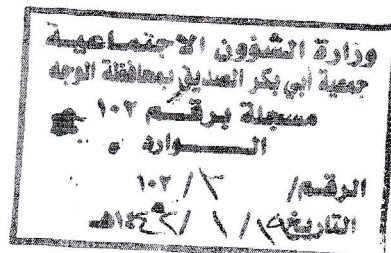 وزارة الشؤون الاجتماعية
جمعية أبي بكر الصديق بمحافظة الوجه
مسجلة برقم ١٠٢
الوارد
الرقم/ ١٠٢/٢
التاريخ / ١ / ١٤٤٢هـ